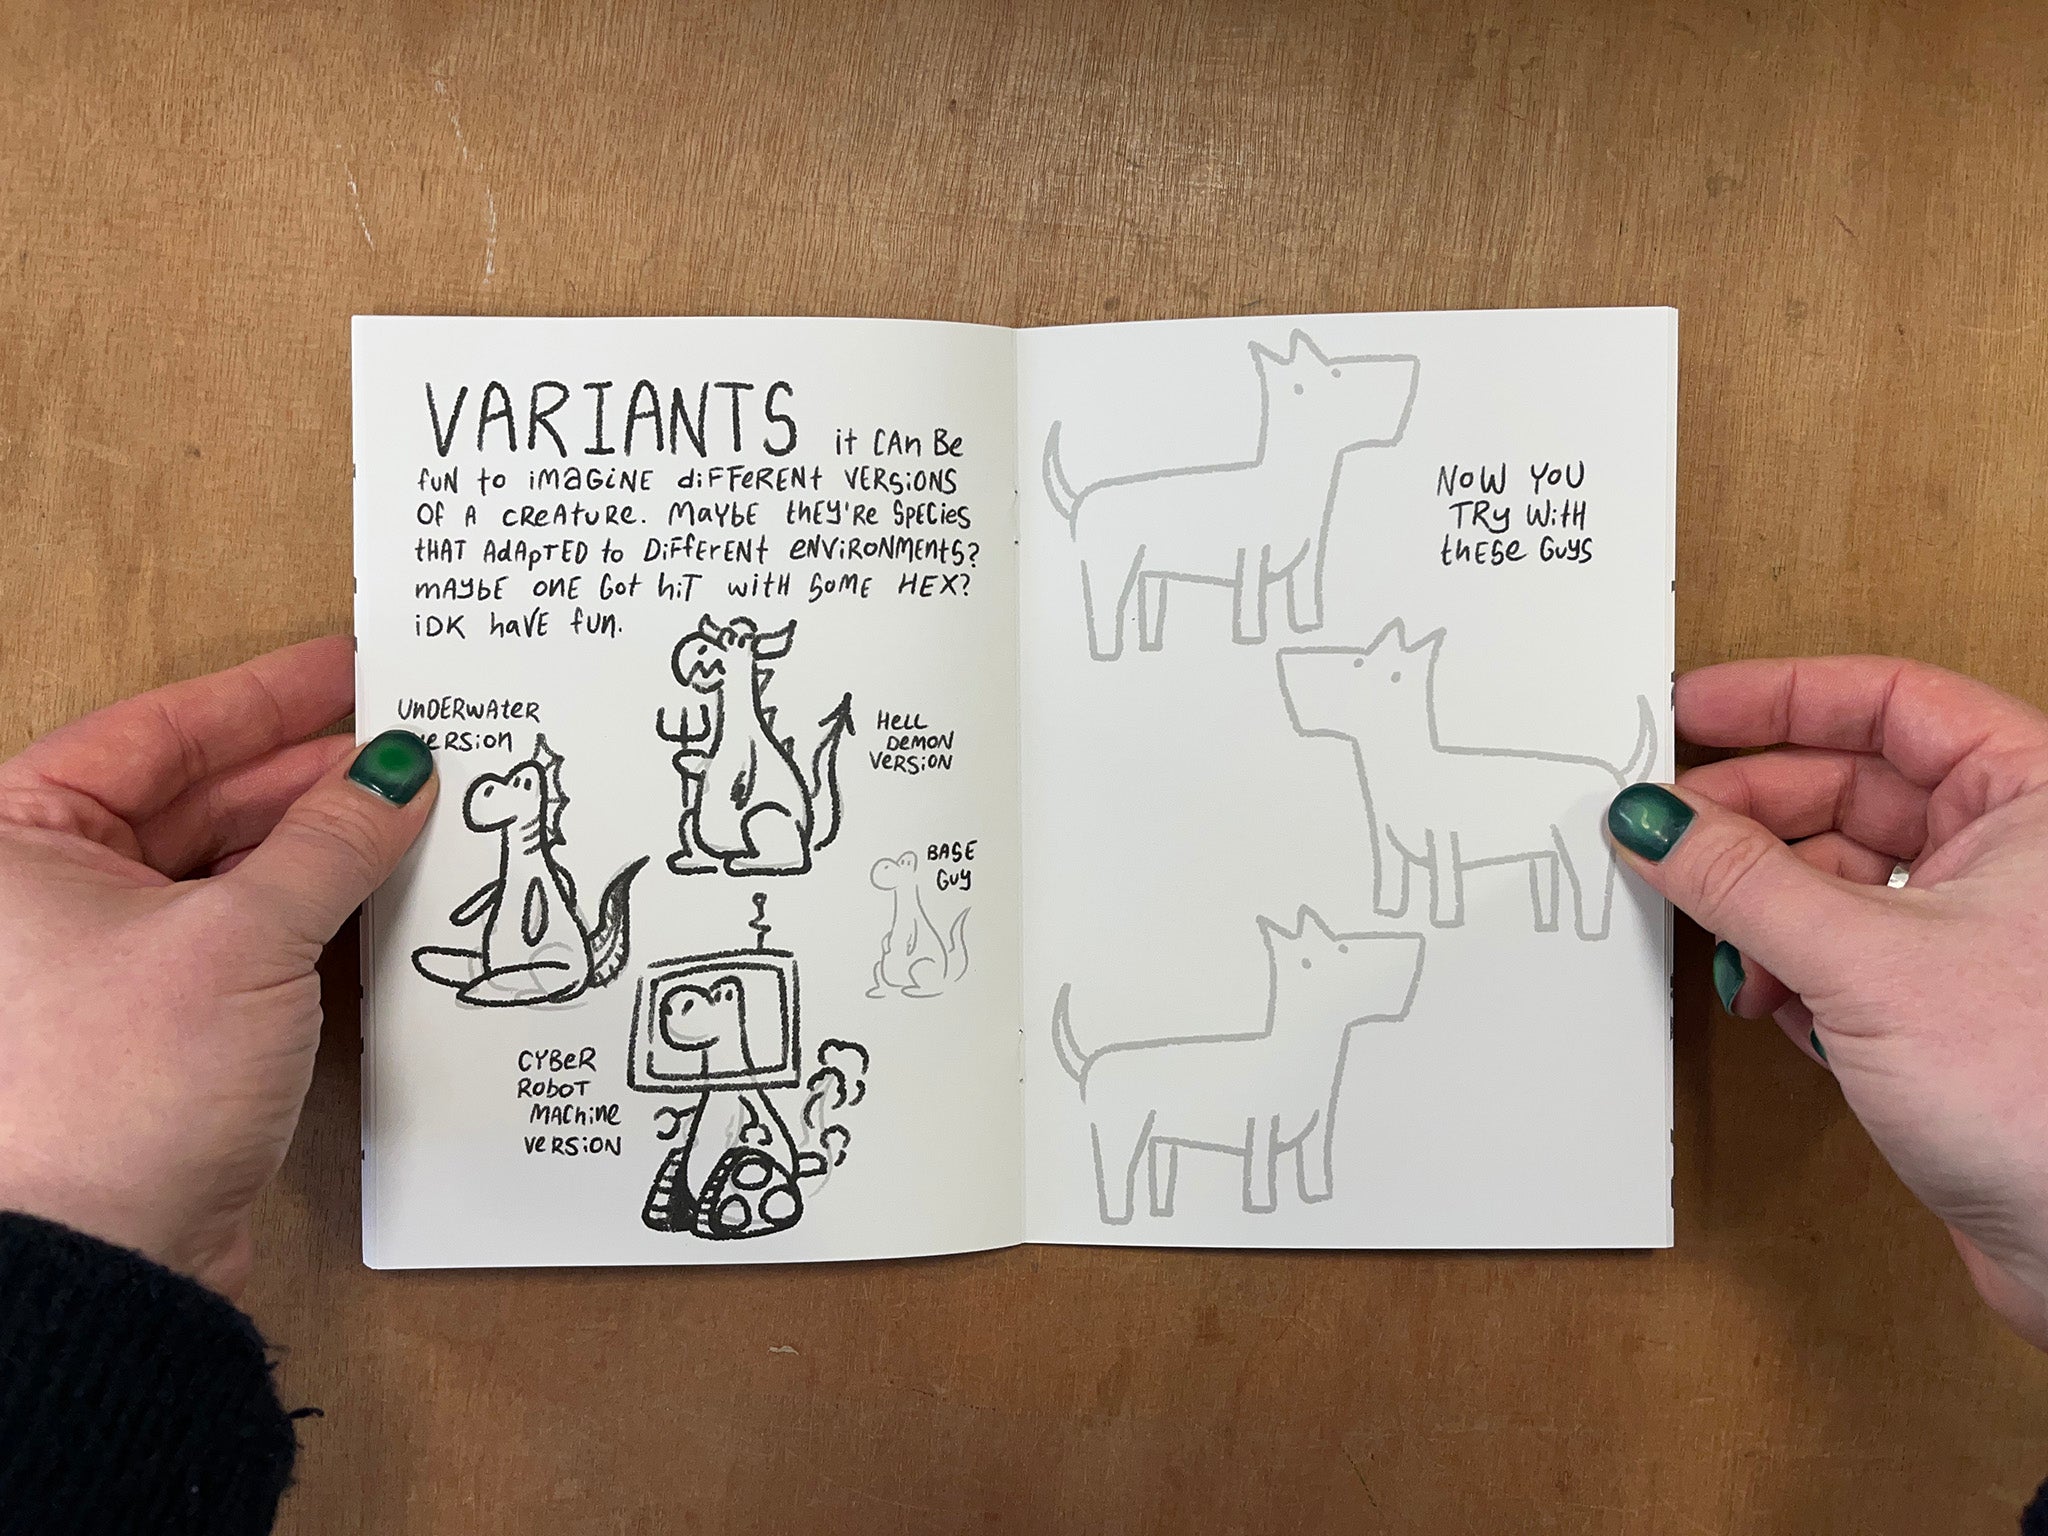 VARIANTS it CAN Be
fUN to iMAGiNE diFFERENt VERSiONS
Of A CReAtuRe. MaYBE tHEY'Re SPECiES
tHAT AdApTED to DiFFerENt eNViRONMENtS?
MAYBE ONE Got hiT witH SOME HEX?
iDK haVE fun.
UnDERWAteR
VeRSiON
HeLL
DeMON
VeRSiON
BASE
GUY
CYBeR
RObOT
MAChiNe
VeRSiON
NOW YOU
TRy WitH
thESe GuYS